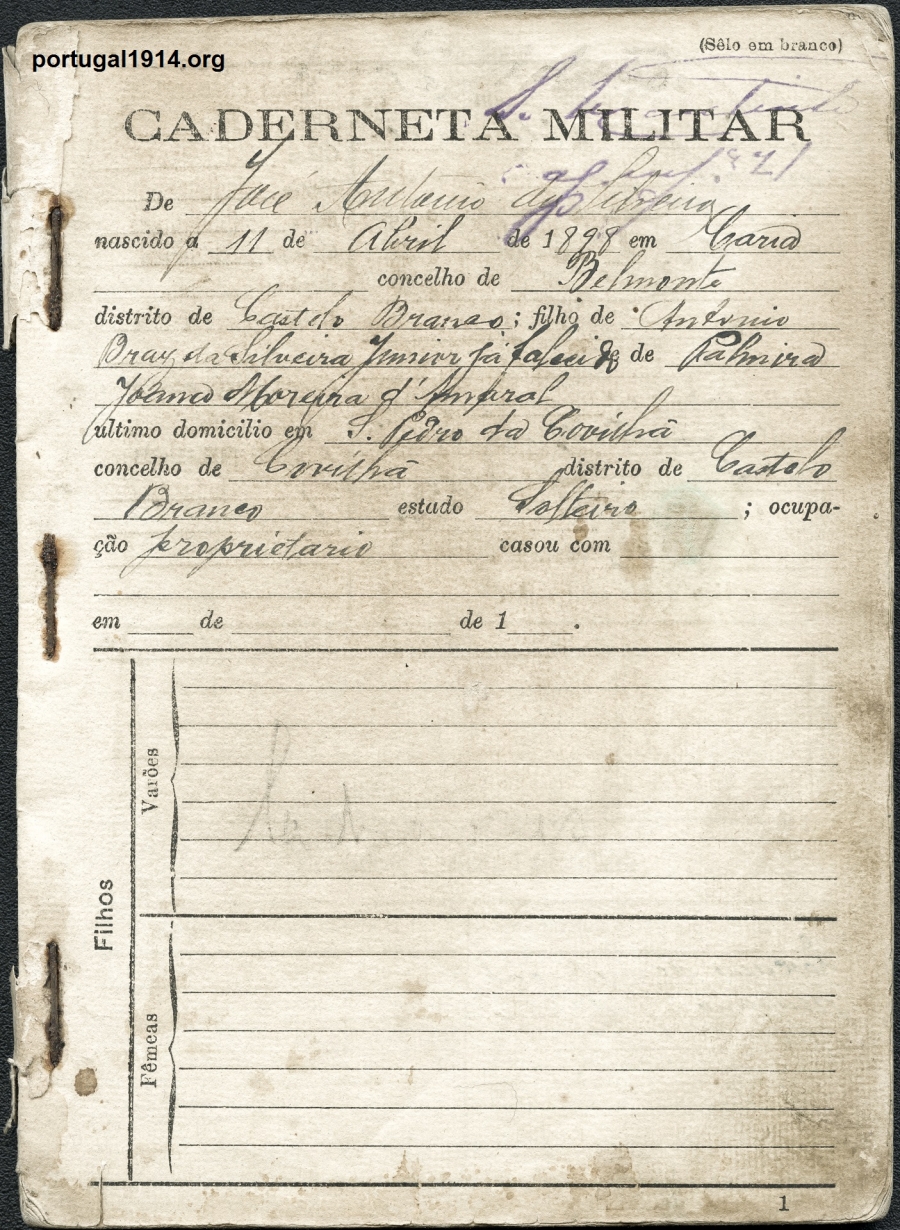 portugal1914.org
(Sêlo em branco)
CADERNETA MILITAR
De José Antonio da Silveira
nascido a 11 de Abril de 1898 em Caria
concelho de Belmonte
distrito de Castelo Branco; filho de Antonio
Braz da Silveira Junior já falecido e de Palmira
Joana Moreira d'Amaral
último domicilio em S. Pedro da Covilhã
concelho de Covilhã distrito de Castelo
Branco estado Solteiro; ocupa-
ção proprietario casou com
em de de 1 .
Filhos
Varões
Fêmeas
1